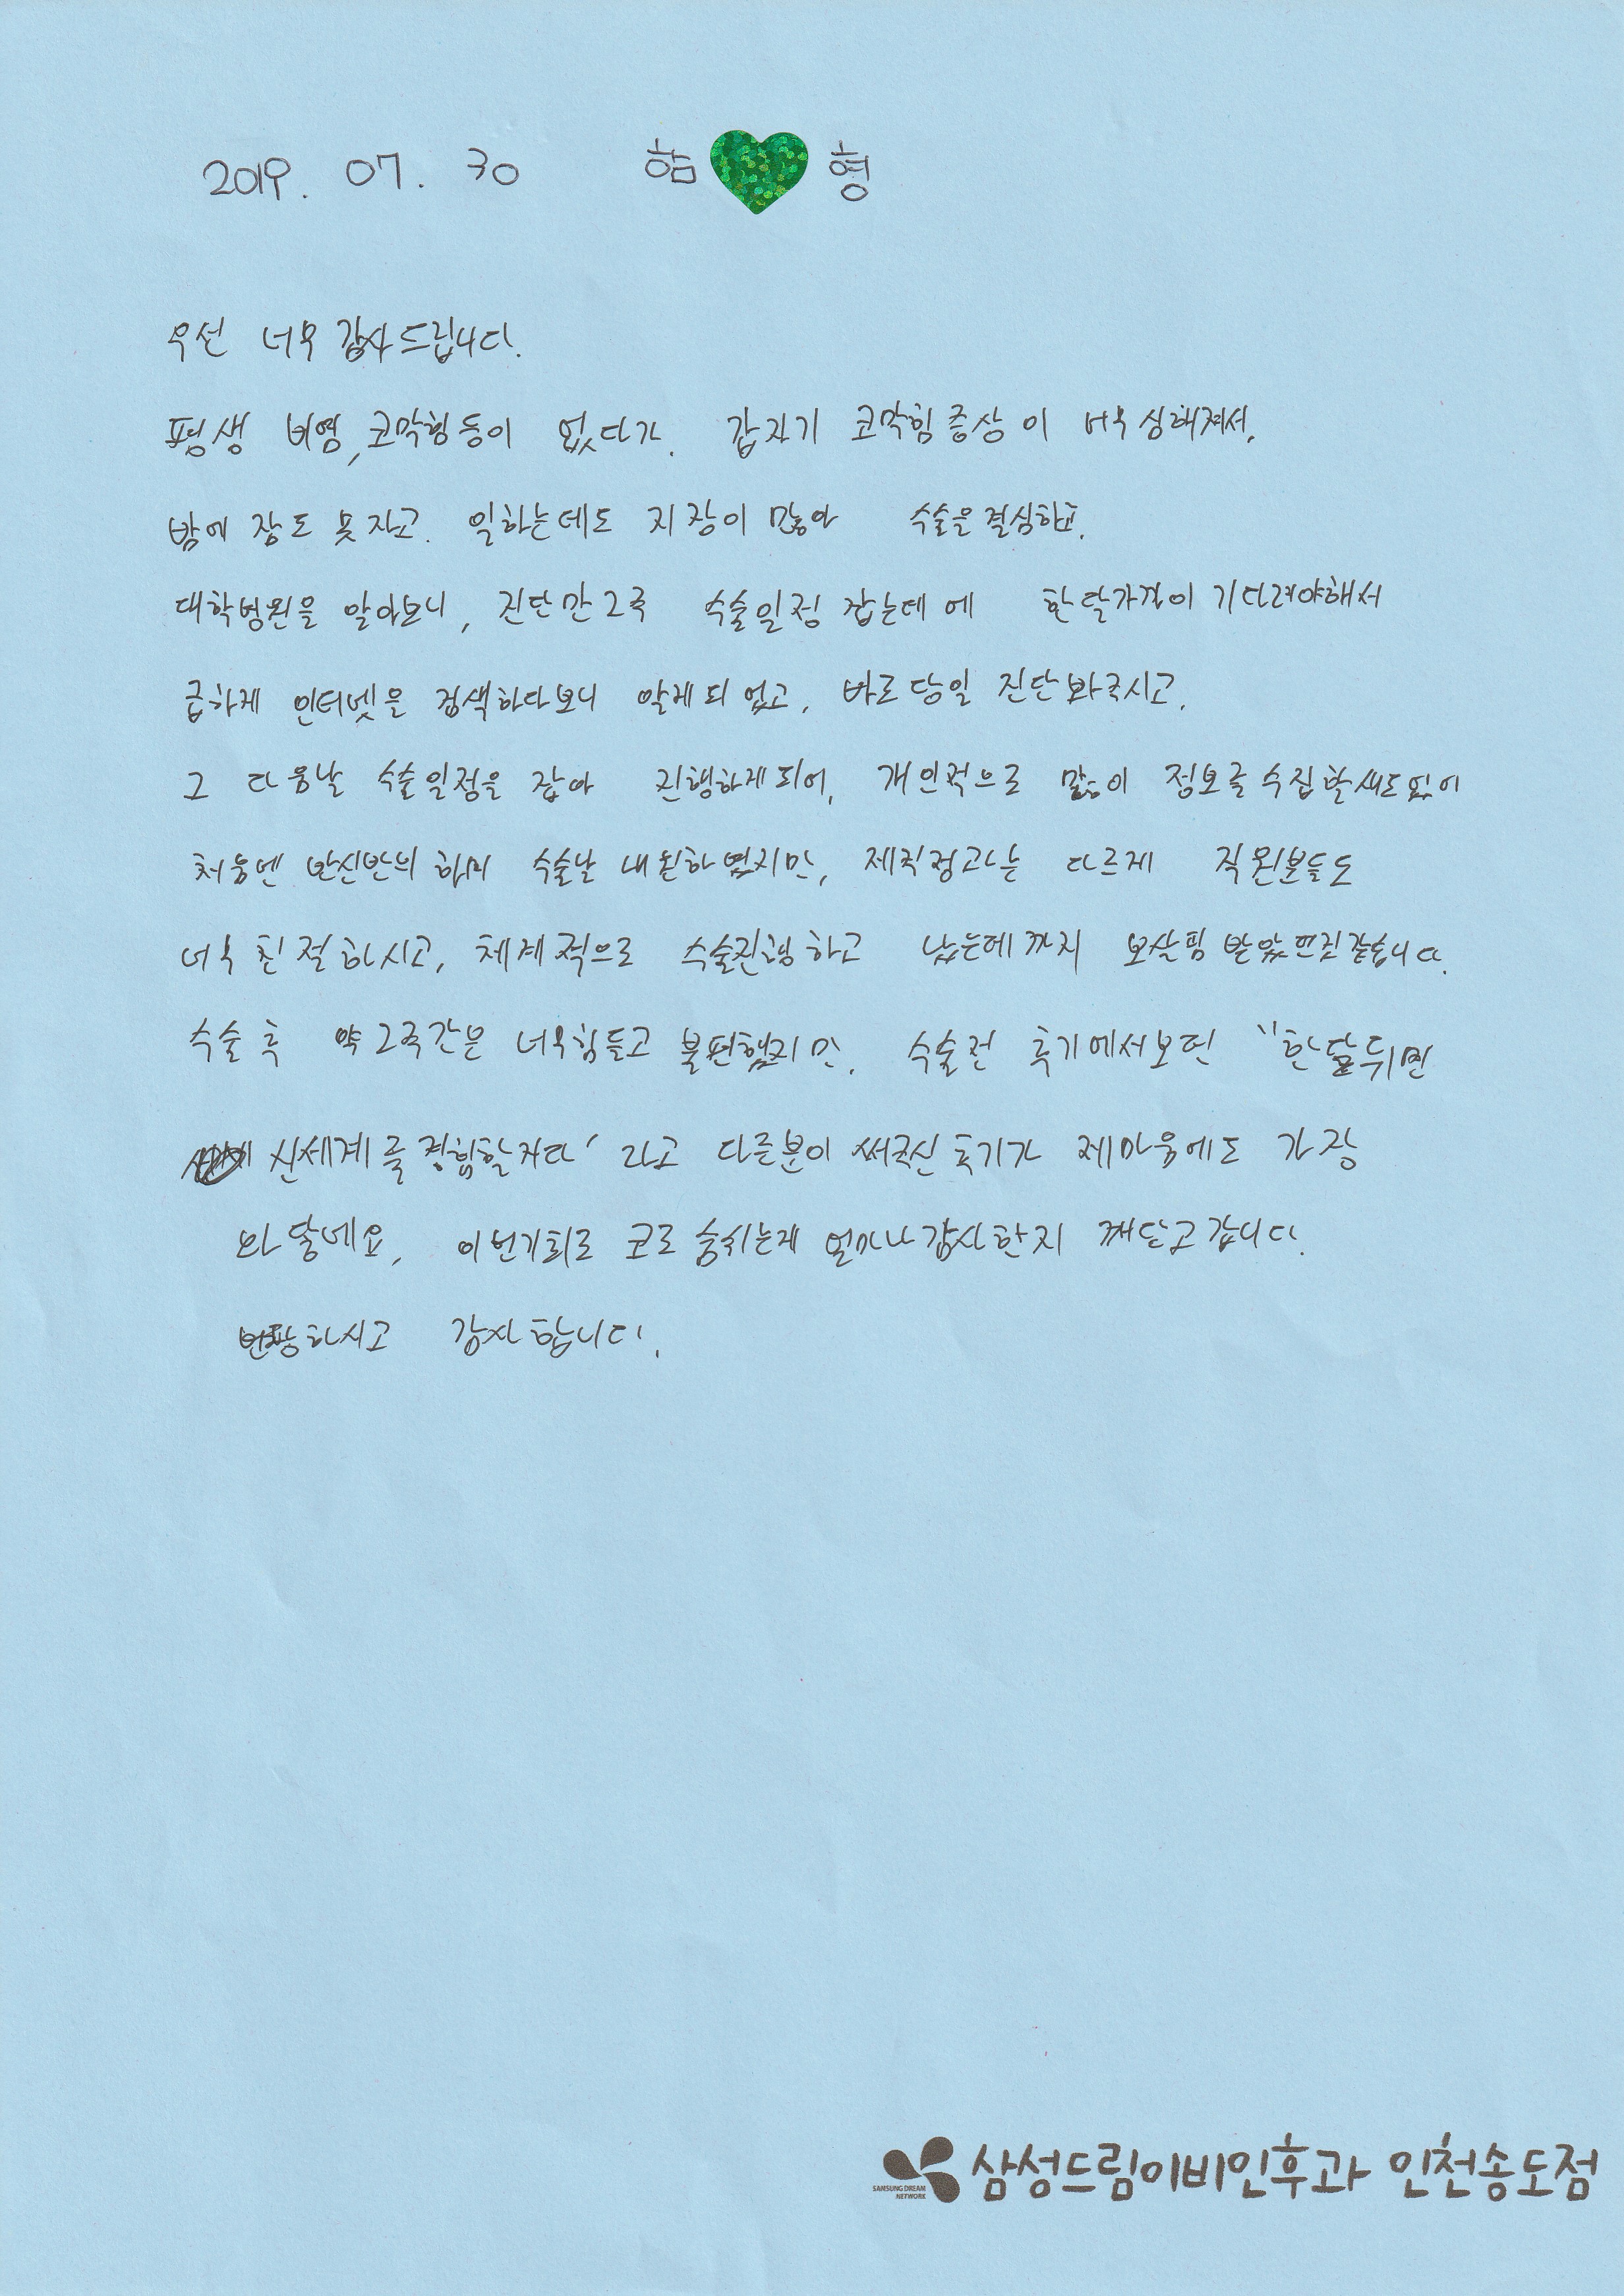 2019. 07. 30 함 형
우선 너무 감사드립니다.
평생 비염, 코막힘등이 없다가. 갑자기 코막힘증상이 너무 심해져서,
밤에 잠도 못자고. 일하는데도 지장이 많아 수술을결심하고,
대학병원을 알아보니, 진단만2주 수술일정 잡는데에 한달가깝이 기다려야해서
급하게 인터넷을 검색하다보니 알게되었고, 바로당일 진단봐주시고,
그 다음날 수술일정을 잡아 진행하게되어, 개인적으로 많이 정보를수집할새도없이
처음엔 반신반의 하며 수술날 내원하였지만, 제걱정과는 다르게 직원분들도
너무 친절하시고, 체계적으로 수술진행하고 낫는데까지 보살핌받았던것같습니다.
수술후 약2주간은 너무힘들고 불편했지만. 수술전 후기에서보던 "한달뒤면
신세계를경험할거다' 라고 다른분이 써주신후기가 제마음에도 가장
와닿네요, 이번기회로 코로숨쉬는게 얼마나감사한지 깨닫고갑니다.
번창하시고 감사합니다.
SAMSUNG DREAM
NETWORK
삼성드림이비인후과 인천송도점